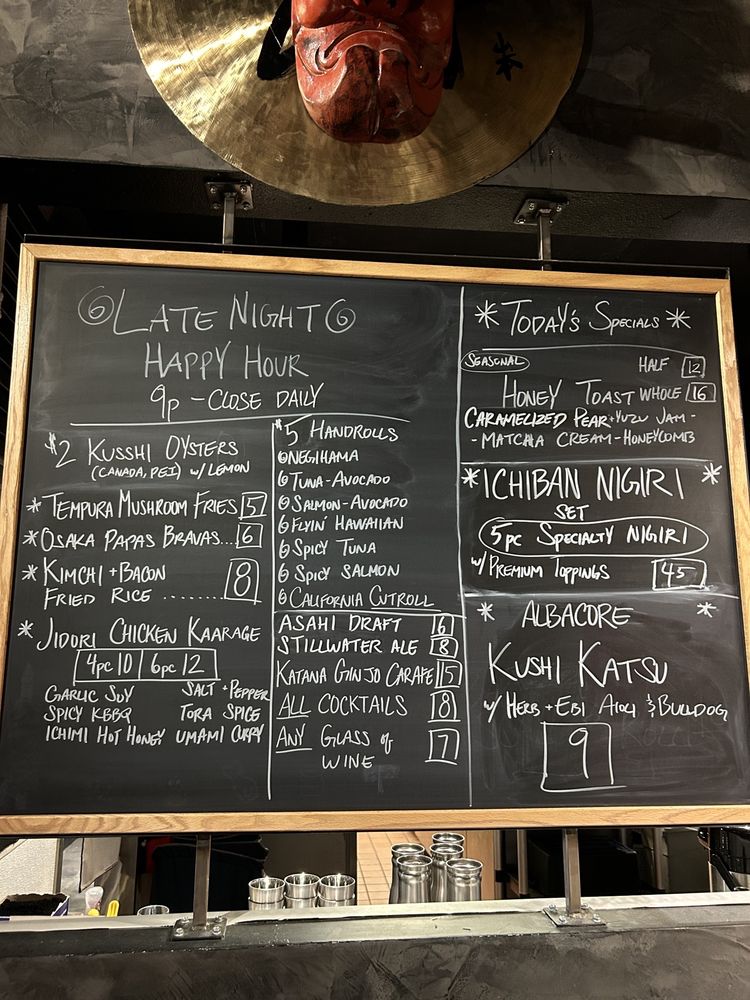 朱
LATE NIGHT
HAPPY HOUR
9p - CLOSE DAILY
$2 KUSSHI OYSTERS
(CANADA, PEI) w/ LEMON
* TEMPURA MUSHROOM FRIES 5
* OSAKA PAPAS BRAVAS... 6
* KIMCHI + BACON
FRIED RICE ........ 8
* JIDORI CHICKEN KAARAGE
4pc 10 | 6pc 12
GARLIC SOY SALT + PEPPER
SPICY KBBQ TORA SPICE
ICHIMI HOT HONEY UMAMI CURRY
$5 HANDROLLS
NEGIHAMA
TUNA-AVOCADO
SALMON-AVOCADO
FLYIN' HAWAIIAN
SPICY TUNA
SPICY SALMON
CALIFORNIA CUTROLL
ASAHI DRAFT 6
STILLWATER ALE 8
KATANA GINJO CARAFE 15
ALL COCKTAILS 8
ANY GLASS of 7
WINE
* TODAY'S SPECIALS *
SEASONAL HALF 12
HONEY TOAST WHOLE 16
CARAMELIZED PEAR + YUZU JAM -
- MATCHA CREAM - HONEYCOMB
* ICHIBAN NIGIRI *
SET
5pc SPECIALTY NIGIRI
w/ PREMIUM TOPPINGS 45
* ALBACORE *
KUSHI KATSU
w/ HERB + EBI AIOLI & BULLDOG
9